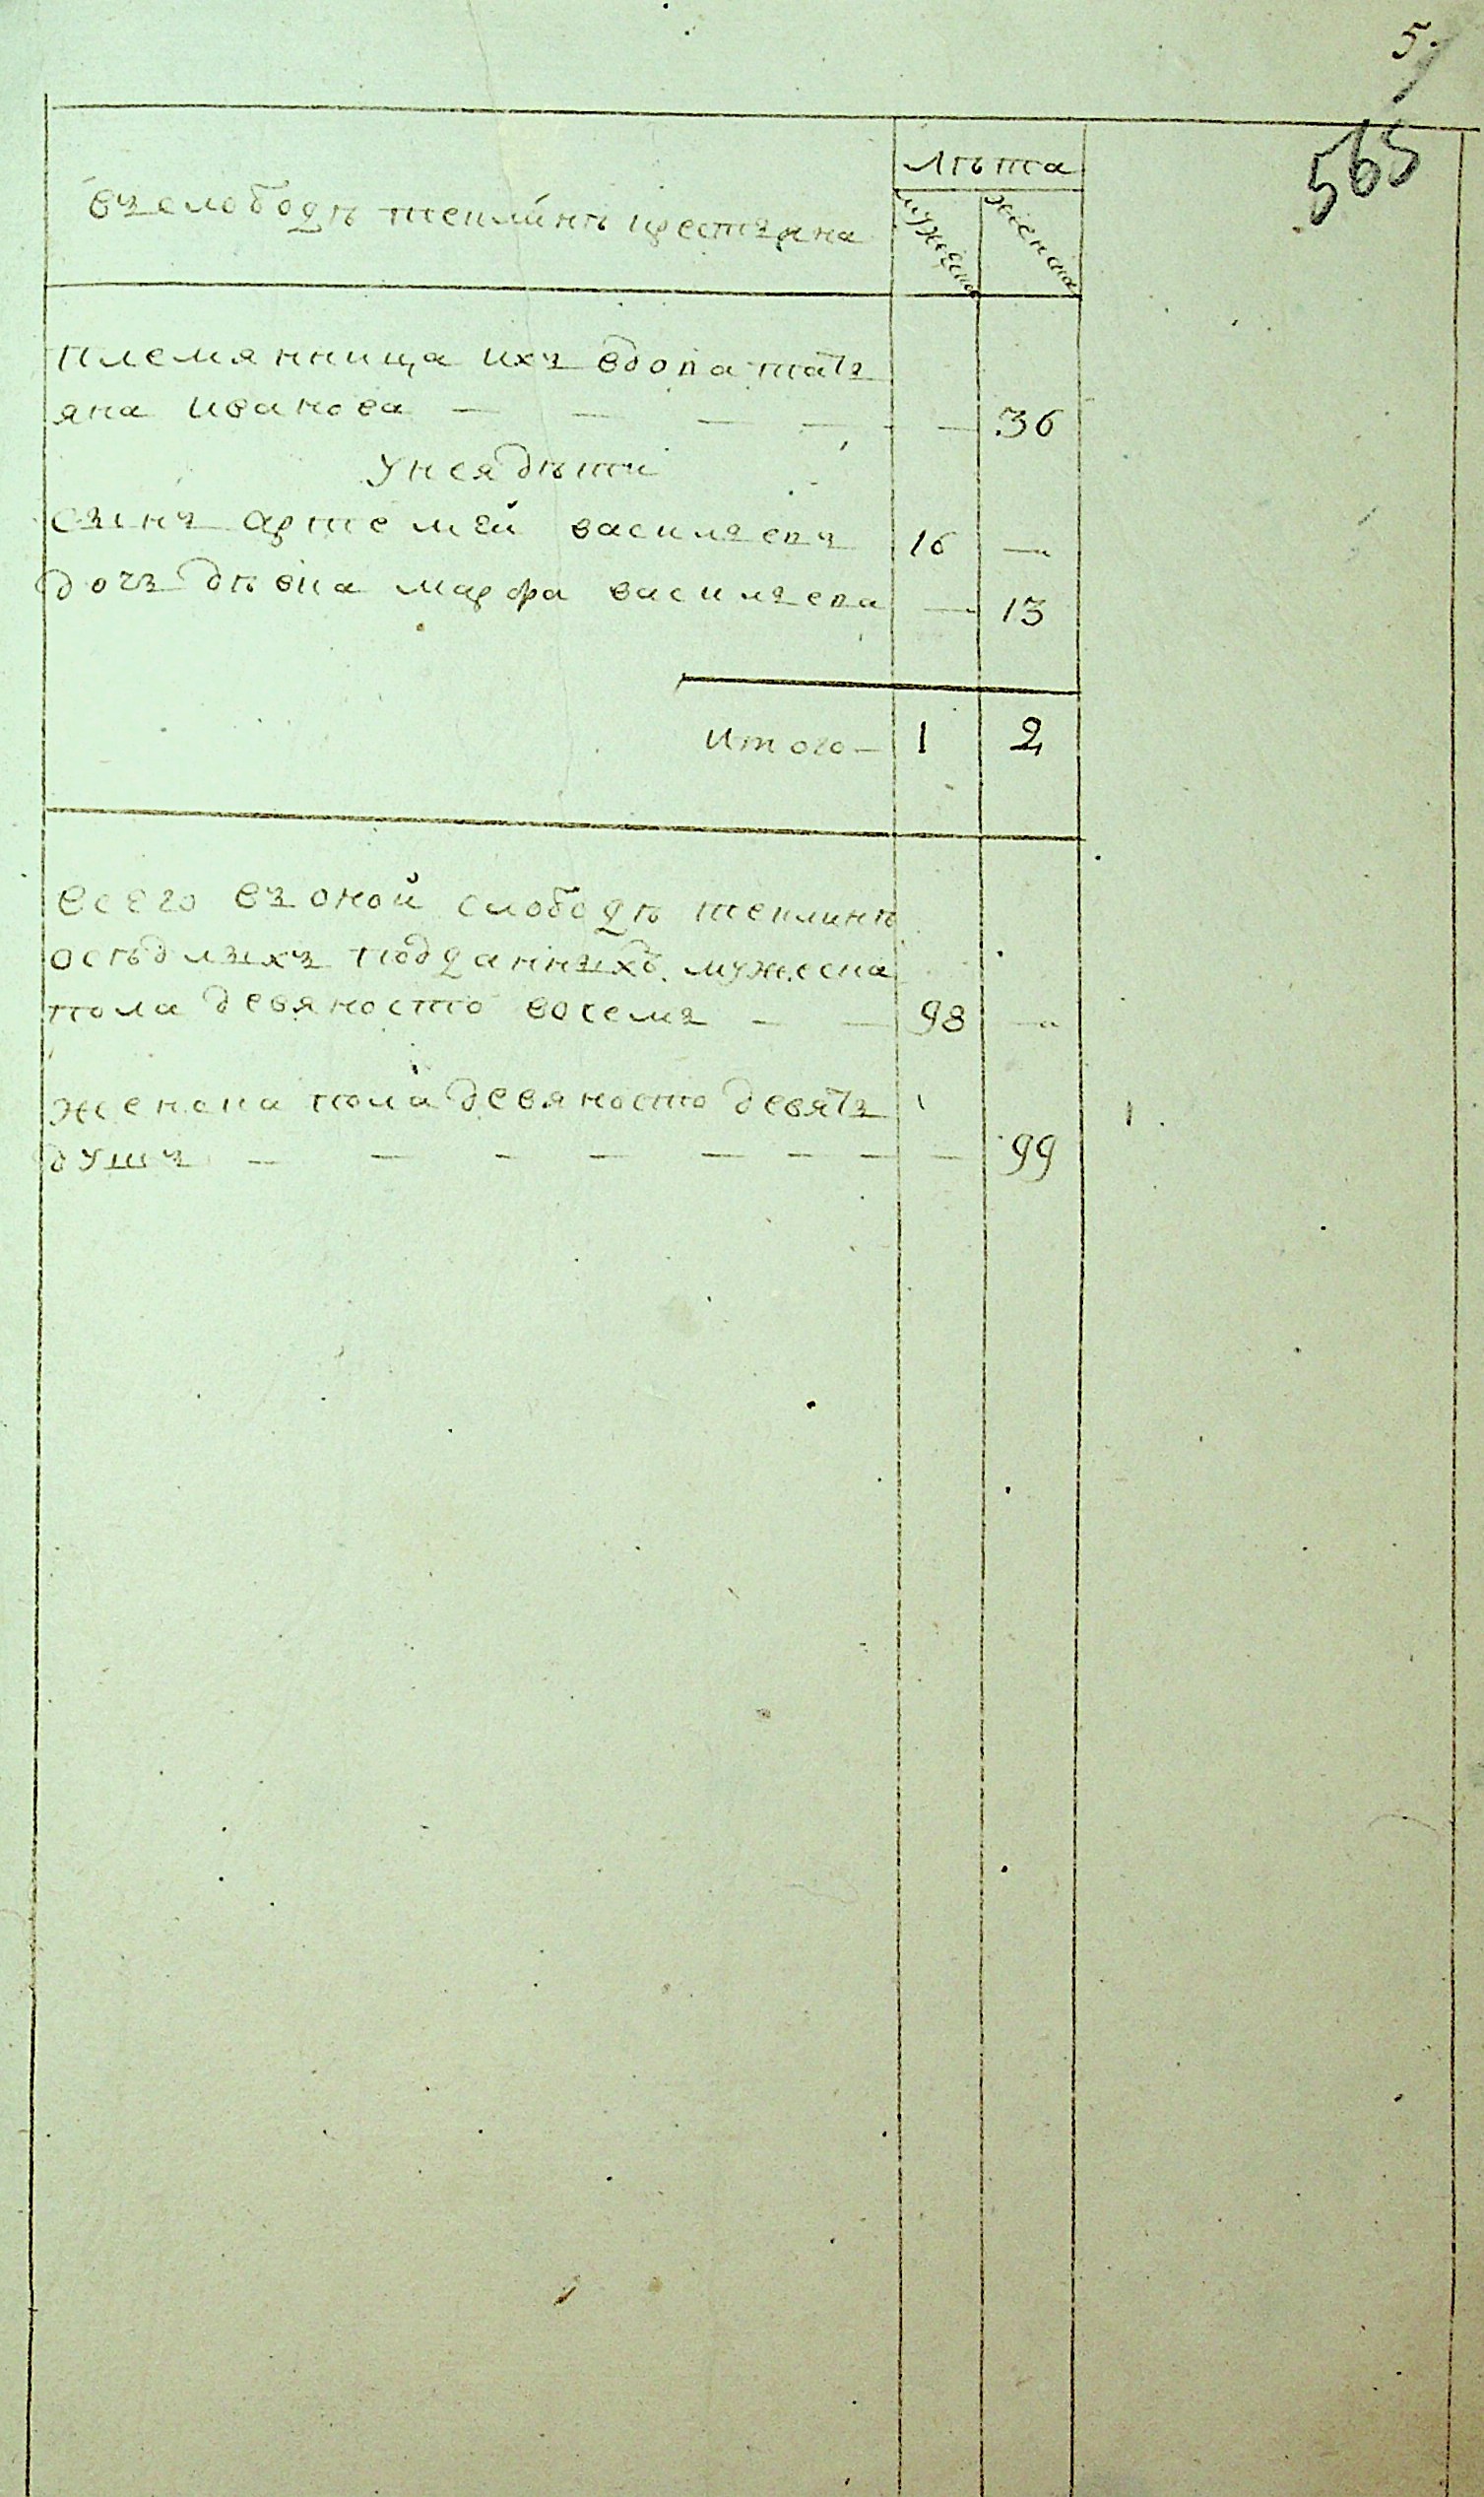 5.
565
лѣта
въ слободѣ теплинѣ крестьяна
мужеска
женска
племянница ихъ вдова тать
яна иванова — — — — — 36
у нея дѣти
сынъ артемей васильевъ 16 —
дочь дѣвка марфа васильева — 13
итого — 1 2
всего въ оной слободѣ теплинѣ
осѣдлыхъ подданныхъ мужеска
пола девяносто восемь — — 98 —
женска пола девяносто девять
душъ — — — — — — — — 99